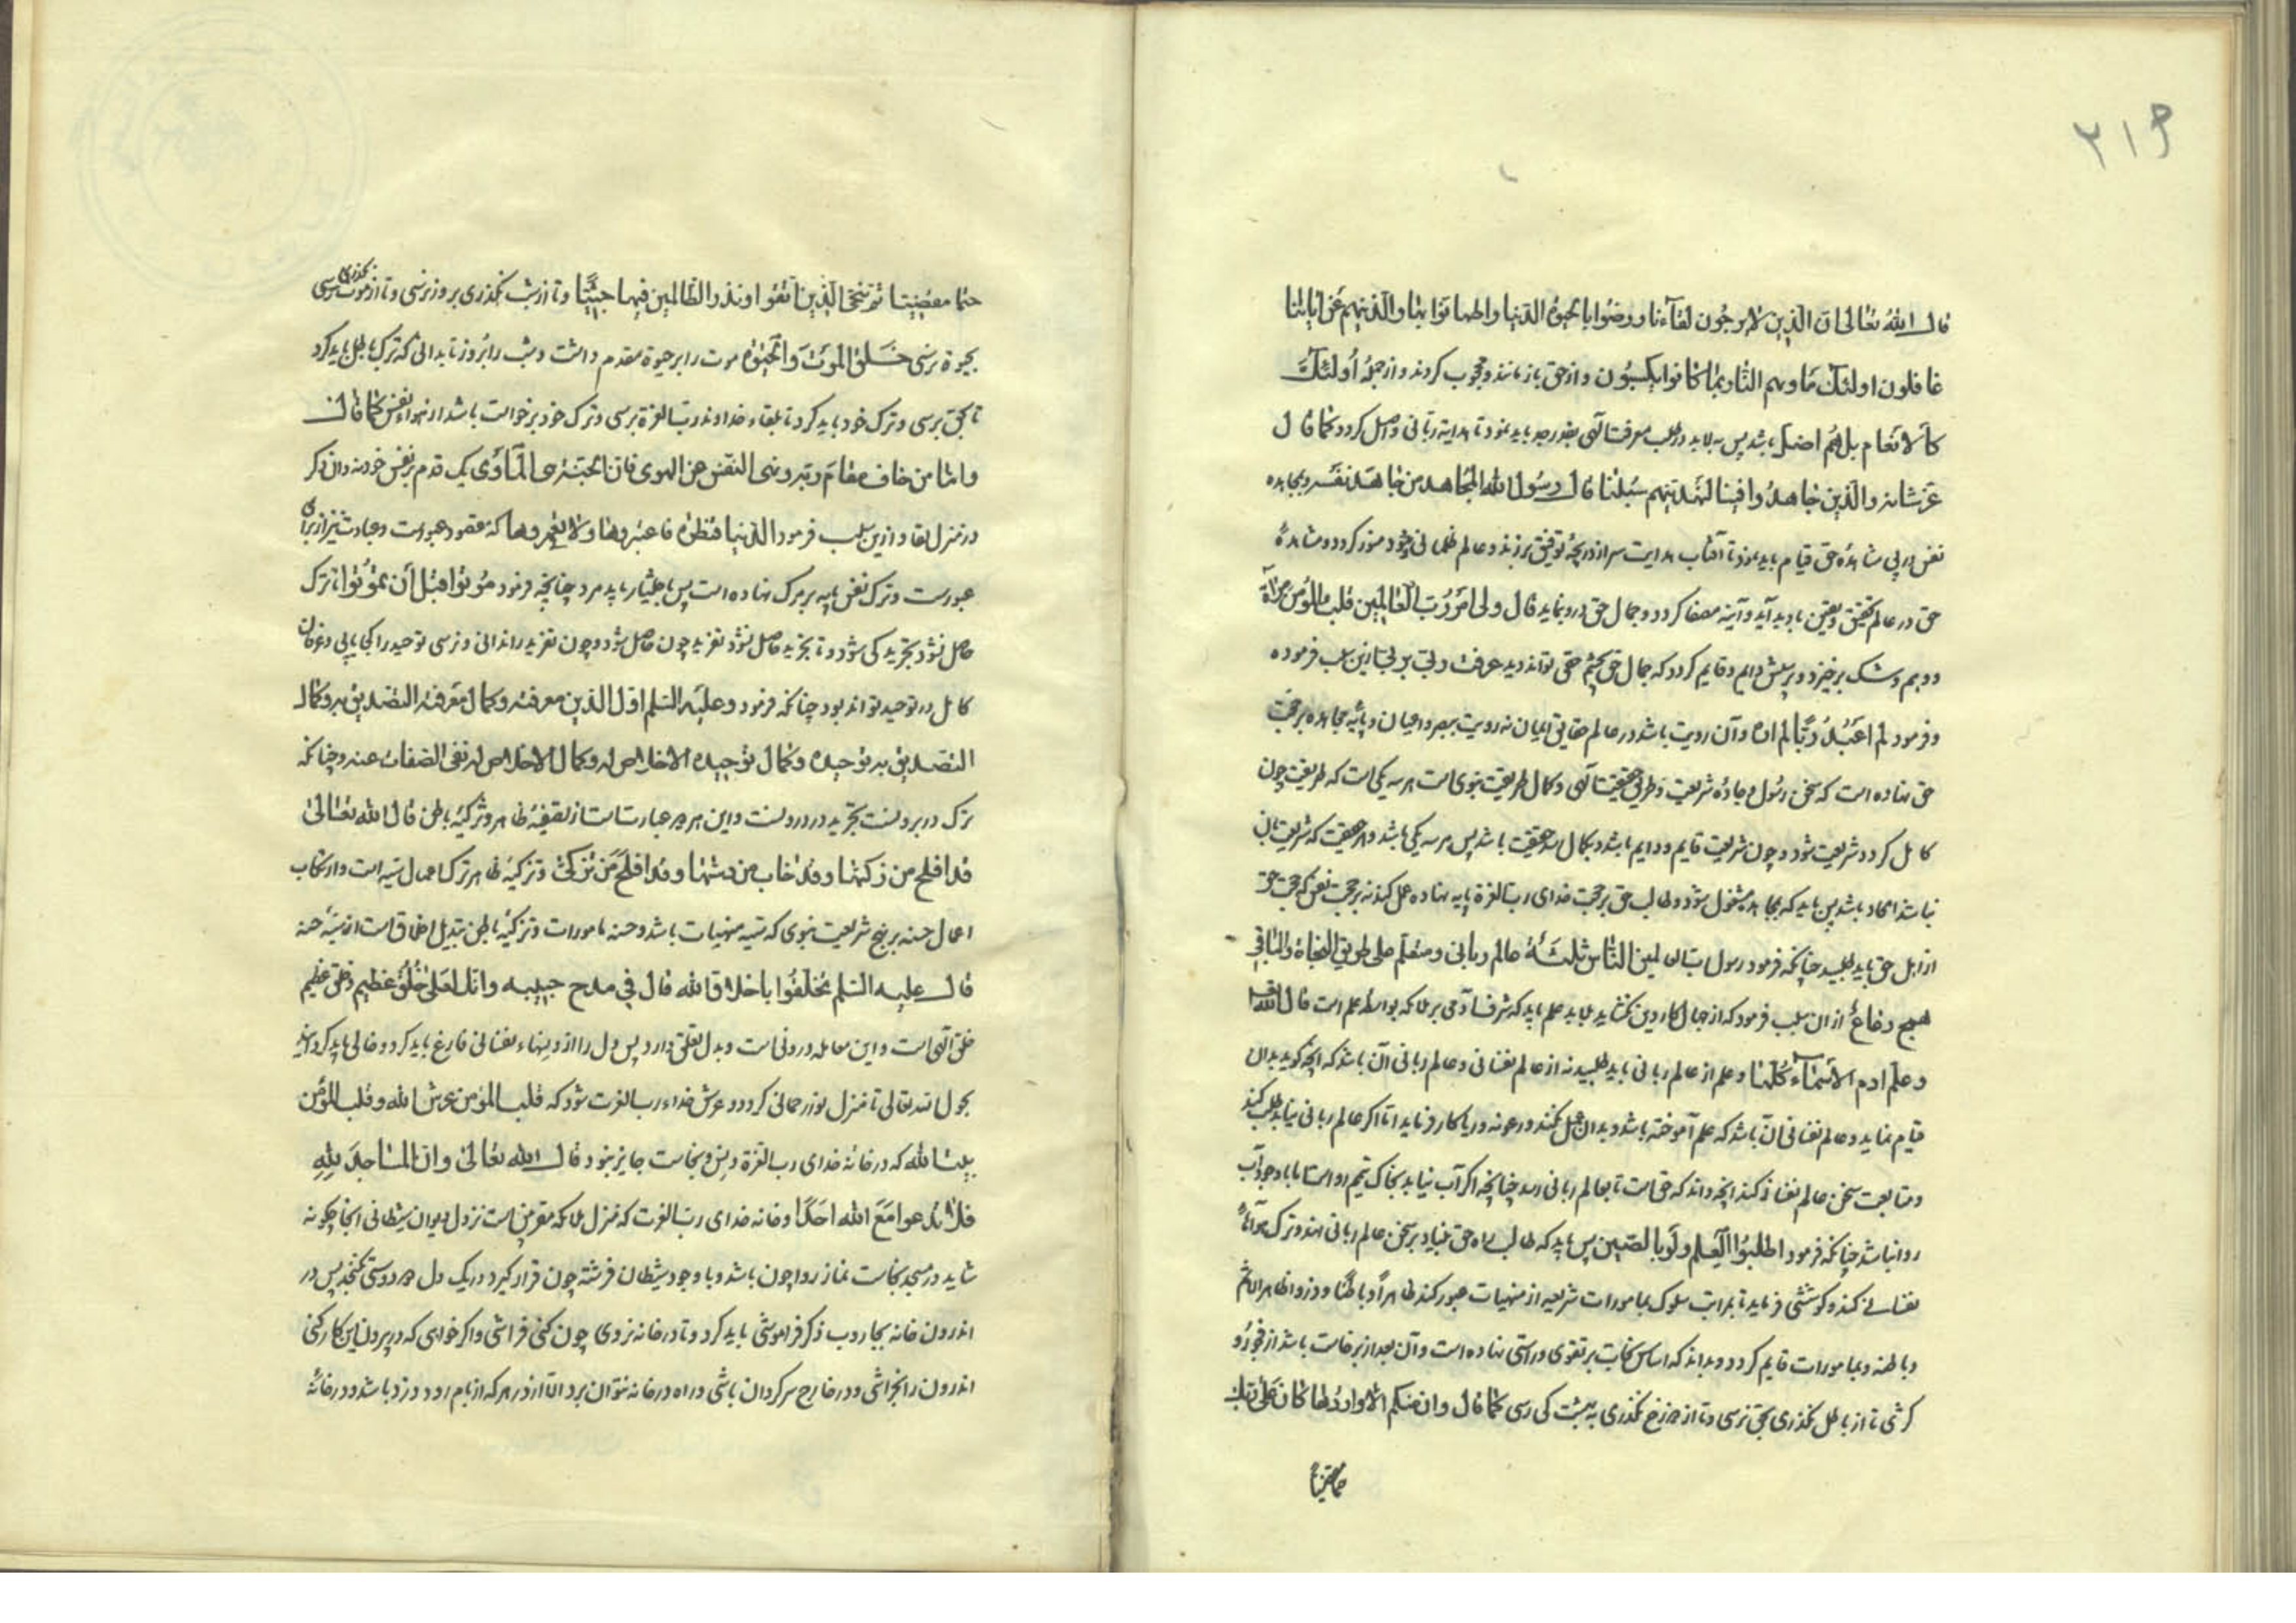 ۲۱۹
قال الله تعالی ان الذین لا یرجون لقاءنا ورضوا بالحیوة الدنیا واطمانوا بها والذین هم عن ایاتنا
غافلون اولئک ماویهم النار بما کانوا یکسبون و از حق باز مانند و محجوب کردند و از جمله اولئک
کالانعام بل هم اضل باشد پس به لابد در طلب معرفت الهی بقدر جهد باید نمود تا هدایة ربانی واصل کردد کما قال
عز شانه والذین جاهدوا فینا لنهدینهم سبلنا قال رسول الله المجاهد من جاهد نفسه و بمجاهده
نفس در پی مشاهدهٔ حق قیام باید نمود تا آفتاب هدایت سر از دریچهٔ توفیق برزند و عالم ظلمانی خود منور کردد و مشاهدهٔ
حق در عالم تحقیق و یقین باو پدید آید و آینه مصفا کردد و جمال حق درو نماید قال ولی امر رب العالمین قلب المؤمن مرآة
و وهم و شک برخیزد و پرسش دایم و قایم کردد که جمال حق بچشم حق تواند دید عرفت ربی بربی ازین سبب فرموده
و فرمود لم اعبد ربا لم اره و آن رویت باشد در عالم حقایق ایمان نه رویت ببصر و اعیان و پایه مجاهده بر محبت
حق نهاده است که سخن رسول و جادهٔ شریعت و طریق حقیقت الهی و کمال طریقت نبوی است هر سه یکی است که طریقت چون
کامل کردد شریعت شود و چون شریعت قایم و دایم باشد و بکمال رسد حقیقت باشد پس هر سه یکی باشد و هر حقیقت که شریعت بان
نباشد الحاد باشد پس باید که بمجاهده مشغول شود و طالب حق بر محبت خدای رب العزة پایه نهاده عمل کند نه بر محبت نفس که محبت حق
از اهل حق باید طلبید چنانکه فرمود رسول رب العالمین الناس ثلثة عالم ربانی ومتعلم علی طریق النجاة والباقی
همج رعاع از ان سبب فرمود که از جهال کار دین نکشاید بلا بد علم باید که شرف آدمی بر ملائکه بواسطه علم است قال الله تعالی
وعلم ادم الاسماء کلها و علم از عالم ربانی باید طلبید نه از عالم نفسانی و عالم ربانی آن باشد که انچه کوید بدان
قیام نماید و عالم نفسانی آن باشد که علم آموخته باشد و بدان عمل نکند و رعونه و ریا کار فرماید اما اکر عالم ربانی نیابد طلب کند
و متابعت سخن عالم نفسانی کند انچه داند که حق است تا بعالم ربانی رسد چنانچه اکر آب نیابد بخاک تیمم رواست اما با وجود آب
روا نباشد چنانکه فرمود اطلبوا العلم ولو بالصین پس باید که طالب راه حق بنیاد بر سخن عالم ربانی نهد و ترک هواهاء
نفسانی کند و کوششی فرماید تا بمراتب سلوک بمامورات شرعیه از منهیات عبور کند ظاهرا و باطنا وذروا ظاهر الاثم
وباطنه و بمامورات قایم کردد و بداند که اساس نجات بر تقوی و راستی نهاده است و آن بعد از برخاست باشد از فجور و
کژی تا از باطل نکذری بحق نرسی و تا از دوزخ نکذری به بهشت کی رسی کما قال وان منکم الا واردها کان علی ربک
حتما مقضیا
حتما مقضیا ثم ننجی الذین اتقوا ونذر الظالمین فیها جثیا و تا از شب نکذری بروز نرسی و تا از موت نکذری نرسی
بحیوة نرسی خلق الموت والحیوة موت را بر حیوة مقدم داشت و شب را بروز تا بدانی که ترک باطل باید کرد
تا بحق برسی و ترک خود باید کرد تا بلقاء خداوند رب العزة برسی و ترک خود برخواست باشد از هواء نفس کما قال
واما من خاف مقام ربه ونهی النفس عن الهوی فان الجنة هی الماوی یک قدم بر نفس خود نه وان دکر
در منزل بقا و ازین سبب فرمود الدنیا قنطرة فاعبروها ولا تعمروها که مقصود عبورست و عبادت نیز از برای
عبورست و ترک نفس پایه بر مرک نهاده است پس باختیار باید مرد چنانچه فرمود موتوا قبل ان تموتوا تا ترک
حاصل نشود تجرید کی شود و تا تجرید حاصل نشود تفرید چون حاصل شود و چون تفرید را ندانی و نرسی توحید را کجا یابی و عرفان
کامل در توحید تواند بود چنانکه فرمود وعلیه السلم اول الدین معرفته وکمال معرفته التصدیق به وکمال
التصدیق به توحیده وکمال توحیده الاخلاص له وکمال الاخلاص له نفی الصفات عنه و چنانکه
ترک در برونست تجرید در درونست و این هر دو عبارتست از تصفیهٔ ظاهر و تزکیهٔ باطن قال الله تعالی
قد افلح من زکیها وقد خاب من دسیها وقد افلح من تزکی و تزکیهٔ ظاهر ترک اعمال سیئه است و ارتکاب
اعمال حسنه بر نهج شریعت نبوی که سیئه منهیات باشد و حسنه مامورات و تزکیهٔ باطن تبدیل اخلاق است از سیئه حسنه
قال علیه السلم تخلقوا باخلاق الله قال فی مدح حبیبه وانک لعلی خلق عظیم و خلق عظیم
خلق الهی است و این معامله درونی است و بدل تعلق دارد پس دل را از دنیاء نفسانی فارغ باید کرد و خالی باید کردانید
بحول الله تعالی تا منزل نور رحمانی کردد و عرش خداء رب العزت شود که قلب المؤمن عرش الله وقلب المؤمن
بیت الله که در خانهٔ خدای رب العزة دنس و نجاست جایز نبود قال الله تعالی وان المساجد لله
فلا تدعوا مع الله احدا و خانه خدای رب العزت که منزل ملائکه مقربین است نزول دیوان شیطانی انجا چکونه
شاید در مسجد نجاست نماز روا چون باشد و با وجود شیطان فرشته چون قرار کیرد در یک دل دو دوستی نکنجد پس در
اندرون خانه بجاروب ذکر فراموشی باید کرد و تا در خانه نروی چون کنی فراشی و اکر خواهی که در بیرون این کار کنی
اندرون را بخراشی و در خارج سرکردان باشی و راه در خانه نتوان برد الا از در هر که از بام رود دزد باشد و در خانهٔ